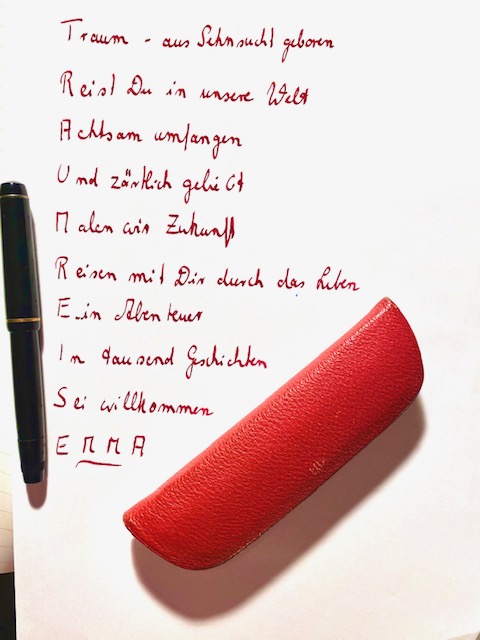 Traum - aus Sehnsucht geboren
Reist Du in unsere Welt
Achtsam umfangen
Und zärtlich geliebt
Malen wir Zukunft
Reisen mit Dir durch das Leben
E-in Abenteuer
In tausend Geschichten
Sei willkommen
EMMA